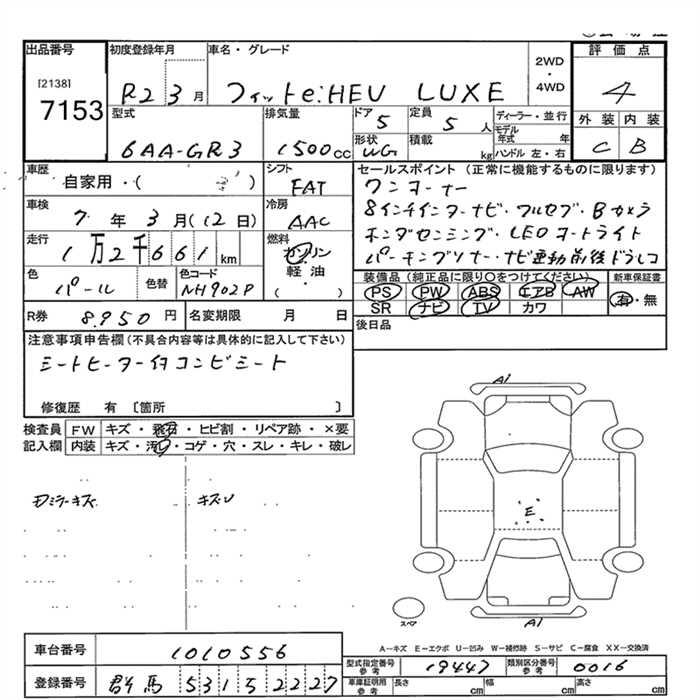 出品番号 初度登録年月 車名・グレード 2WD・4WD 評価点
[2138]
7153 R2 3月 フィットe:HEV LUXE 4
型式 排気量 ドア 定員 ディーラー・並行 外装 内装
6AA-GR3 1500cc 5 5人 モデル年式 年 C B
形状 積載
WG kg ハンドル 左・右
車歴 シフト セールスポイント (正常に機能するものに限ります)
自家用・( ) FAT ワンオーナー
車検 冷房 8インチインターナビ・フルセグ・Bカメラ
7年3月(12日) AAC ホンダセンシング・LEDオートライト
走行 燃料 パーキングソナー・ナビ連動前後ドラレコ
1万2千661km ガソリン
軽油
( )
色 色替 色コード 装備品 (純正品に限り○をつけてください) 新車保証書
パール NH902P PS PW ABS エアB AW 有・無
SR ナビ TV カワ
R券 8,950円 名変期限 月 日 後日品
注意事項申告欄 (不具合内容等は具体的に記入して下さい)
シートヒーター付コンビシート
修復歴 有 〔箇所 〕
検査員 FW キズ・飛石・ヒビ割・リペア跡・×要
記入欄 内装 キズ・汚レ・コゲ・穴・スレ・キレ・破レ
A1
キズU
E
スペア
A1
A-キズ E-エクボ U-凹み W-補修跡 S-サビ C-腐食 XX-交換済
車台番号 1010556
型式指定番号 参考 19447 類別区分番号 参考 0016
登録番号 群馬 531 5 2227
車庫証明用 参考 長さ cm 幅 cm 高さ cm